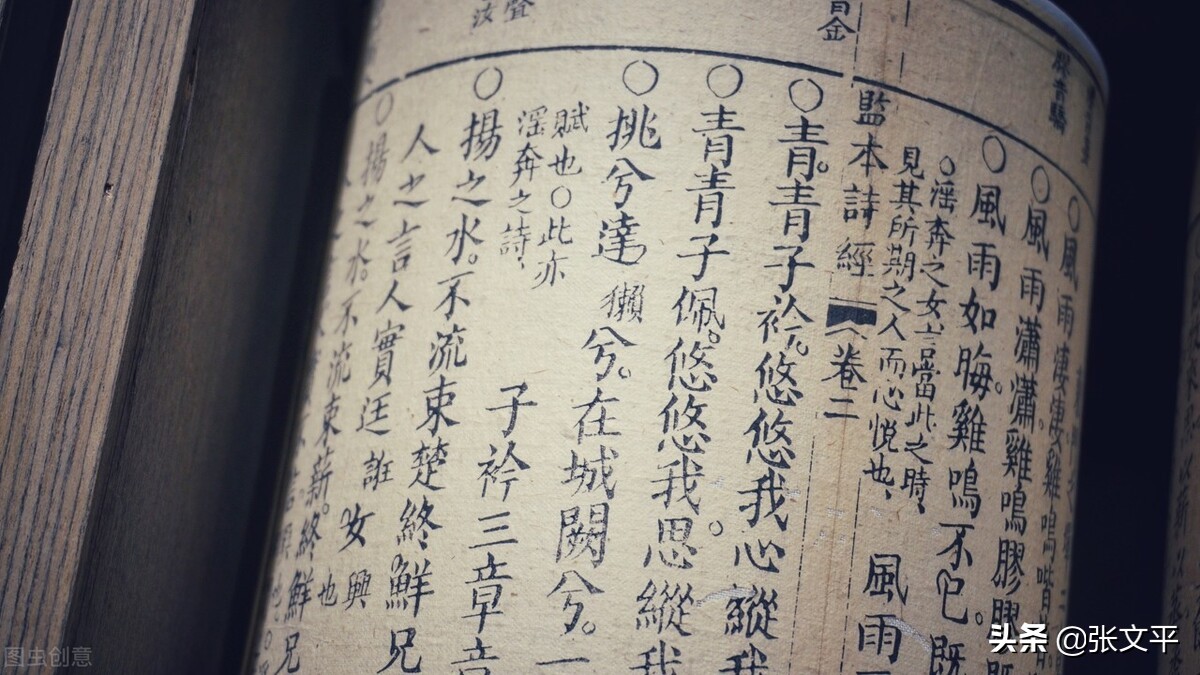 ○風雨淒淒雞鳴喈
○風雨瀟瀟雞鳴膠膠
○風雨如晦雞鳴不已既
○淫奔之女言當此之時
見其所期之人而心悅也
風雨
監本詩經
卷二
○青青子衿悠悠我心縱我
○青青子佩悠悠我思縱我
○挑兮達兮在城闕兮一
獺
賦也○此亦
淫奔之詩
子衿三章章
○揚之水不流束楚終鮮兄
人之言人實迋誑女
興也
○揚之水不流束薪終鮮兄
頭条 @张文平
图虫创意